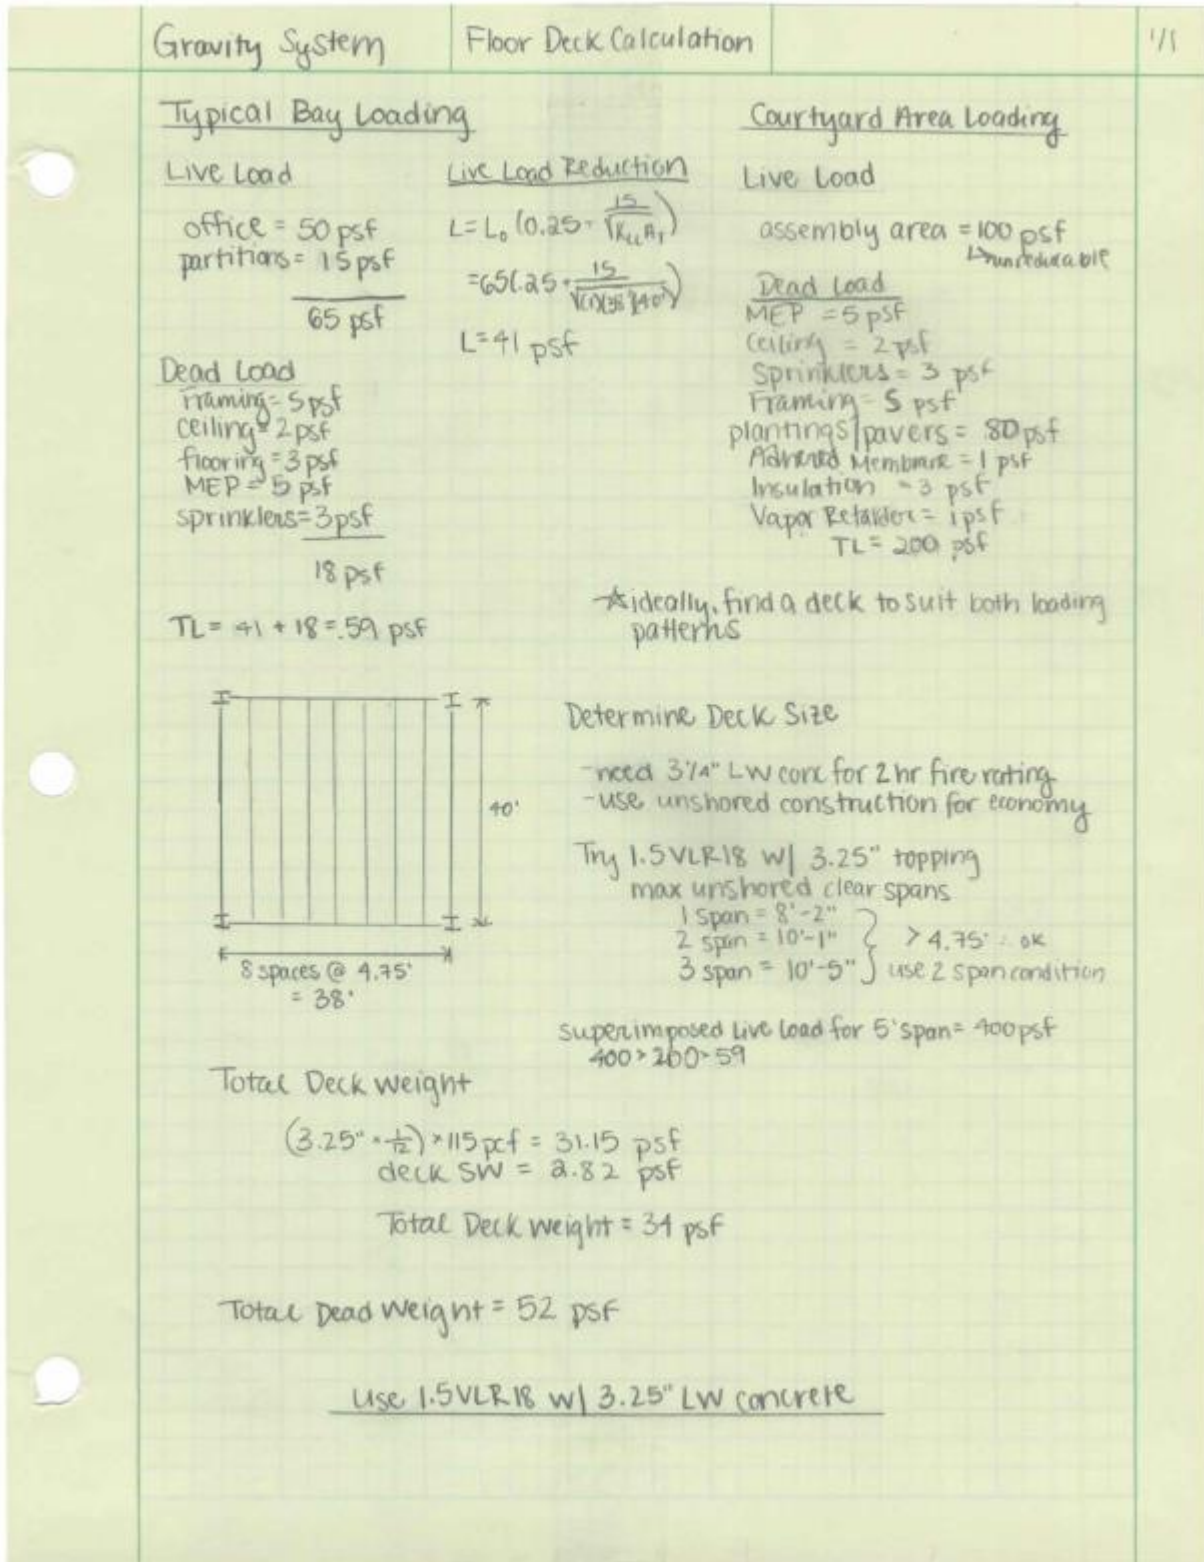 Gravity System
Floor Deck Calculation
1/1
Typical Bay Loading
Live Load
office = 50 psf
partitions = 15 psf
65 psf
Dead Load
Framing = 5 psf
ceiling = 2 psf
flooring = 3 psf
MEP = 5 psf
sprinklers = 3 psf
18 psf
TL = 41 + 18 = 59 psf
Live Load Reduction
L = L₀ (0.25 + 15/√(K_LL A_T))
= 65(.25 + 15/√((1)(38')(40')))
L = 41 psf
Courtyard Area Loading
Live Load
assembly area = 100 psf
↳ unreducable
Dead Load
MEP = 5 psf
Ceiling = 2 psf
Sprinklers = 3 psf
Framing = 5 psf
plantings/pavers = 80 psf
Adhered Membrane = 1 psf
Insulation = 3 psf
Vapor Retarder = 1 psf
TL = 200 psf
☆ ideally, find a deck to suit both loading
patterns
40'
8 spaces @ 4.75'
= 38'
Determine Deck Size
- need 3 1/4" LW conc for 2 hr fire rating
- use unshored construction for economy
Try 1.5VLR18 w/ 3.25" topping
max unshored clear spans
1 span = 8'-2"
2 span = 10'-1" > 4.75' ∴ ok
3 span = 10'-5" use 2 span condition
superimposed live load for 5' span = 400 psf
400 > 200 > 59
Total Deck Weight
(3.25" × 1/12) × 115 pcf = 31.15 psf
deck SW = 2.82 psf
Total Deck Weight = 34 psf
Total Dead Weight = 52 psf
Use 1.5VLR18 w/ 3.25" LW concrete